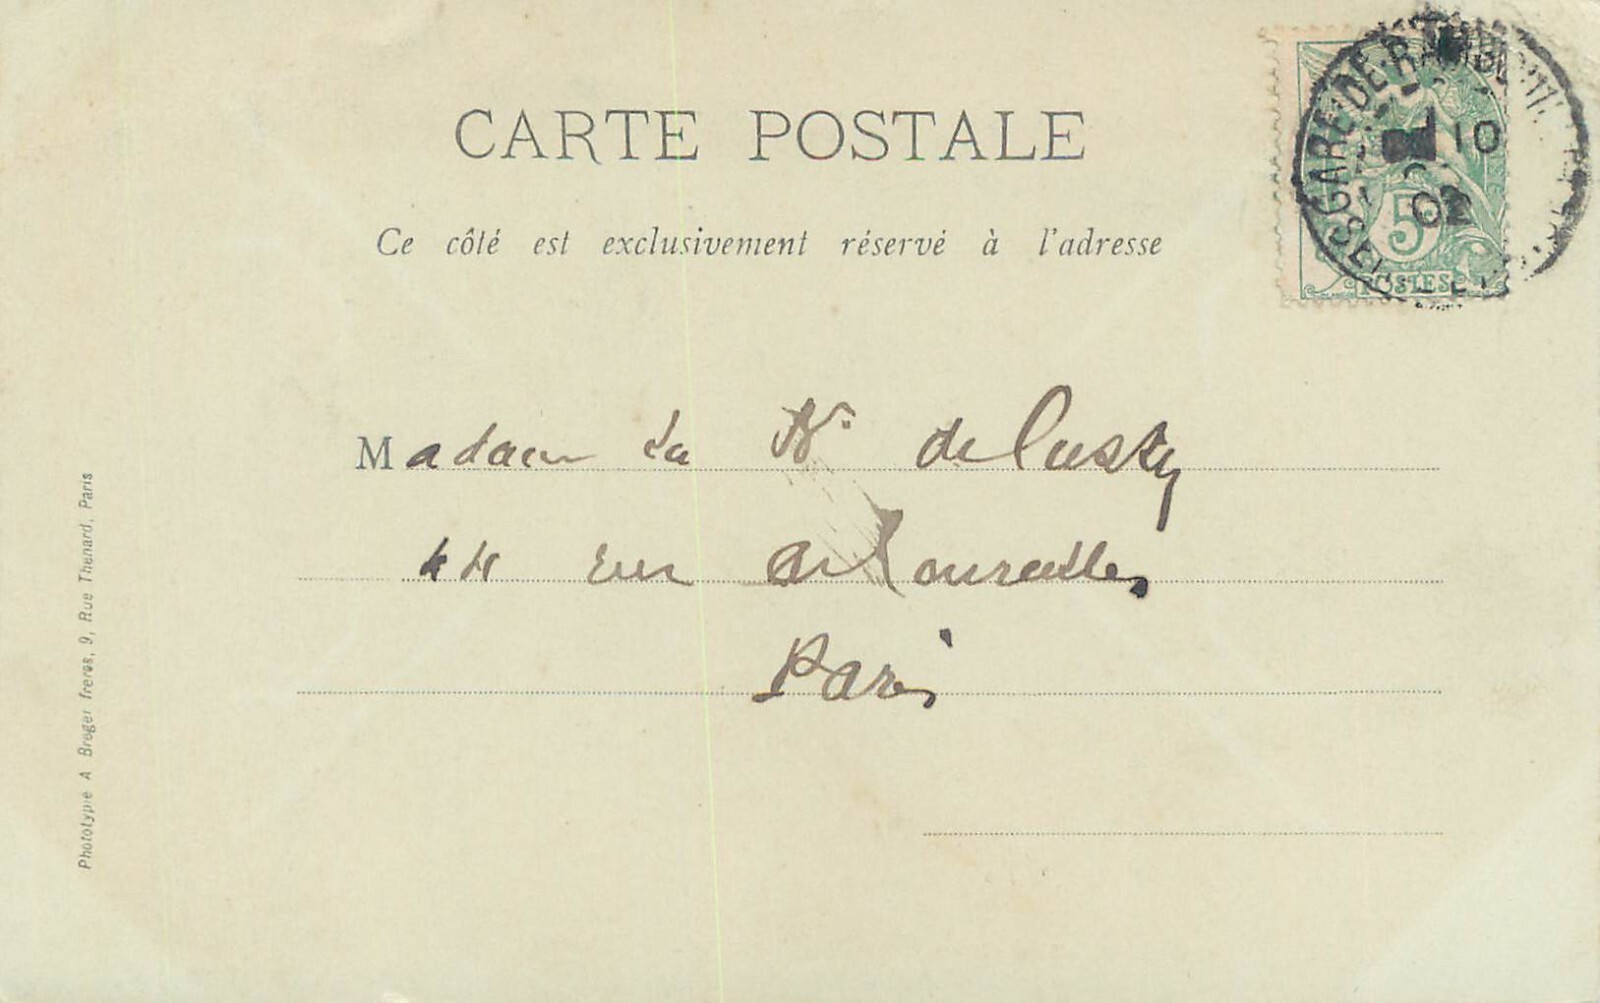 CARTE POSTALE
Ce côté est exclusivement réservé à l'adresse
GARE DE RAMBOUIL
10
02
5
POSTES
Madame la de
44 rue de Courcelles
Paris
Phototypie A Breger frères, 9, Rue Thenard, Paris